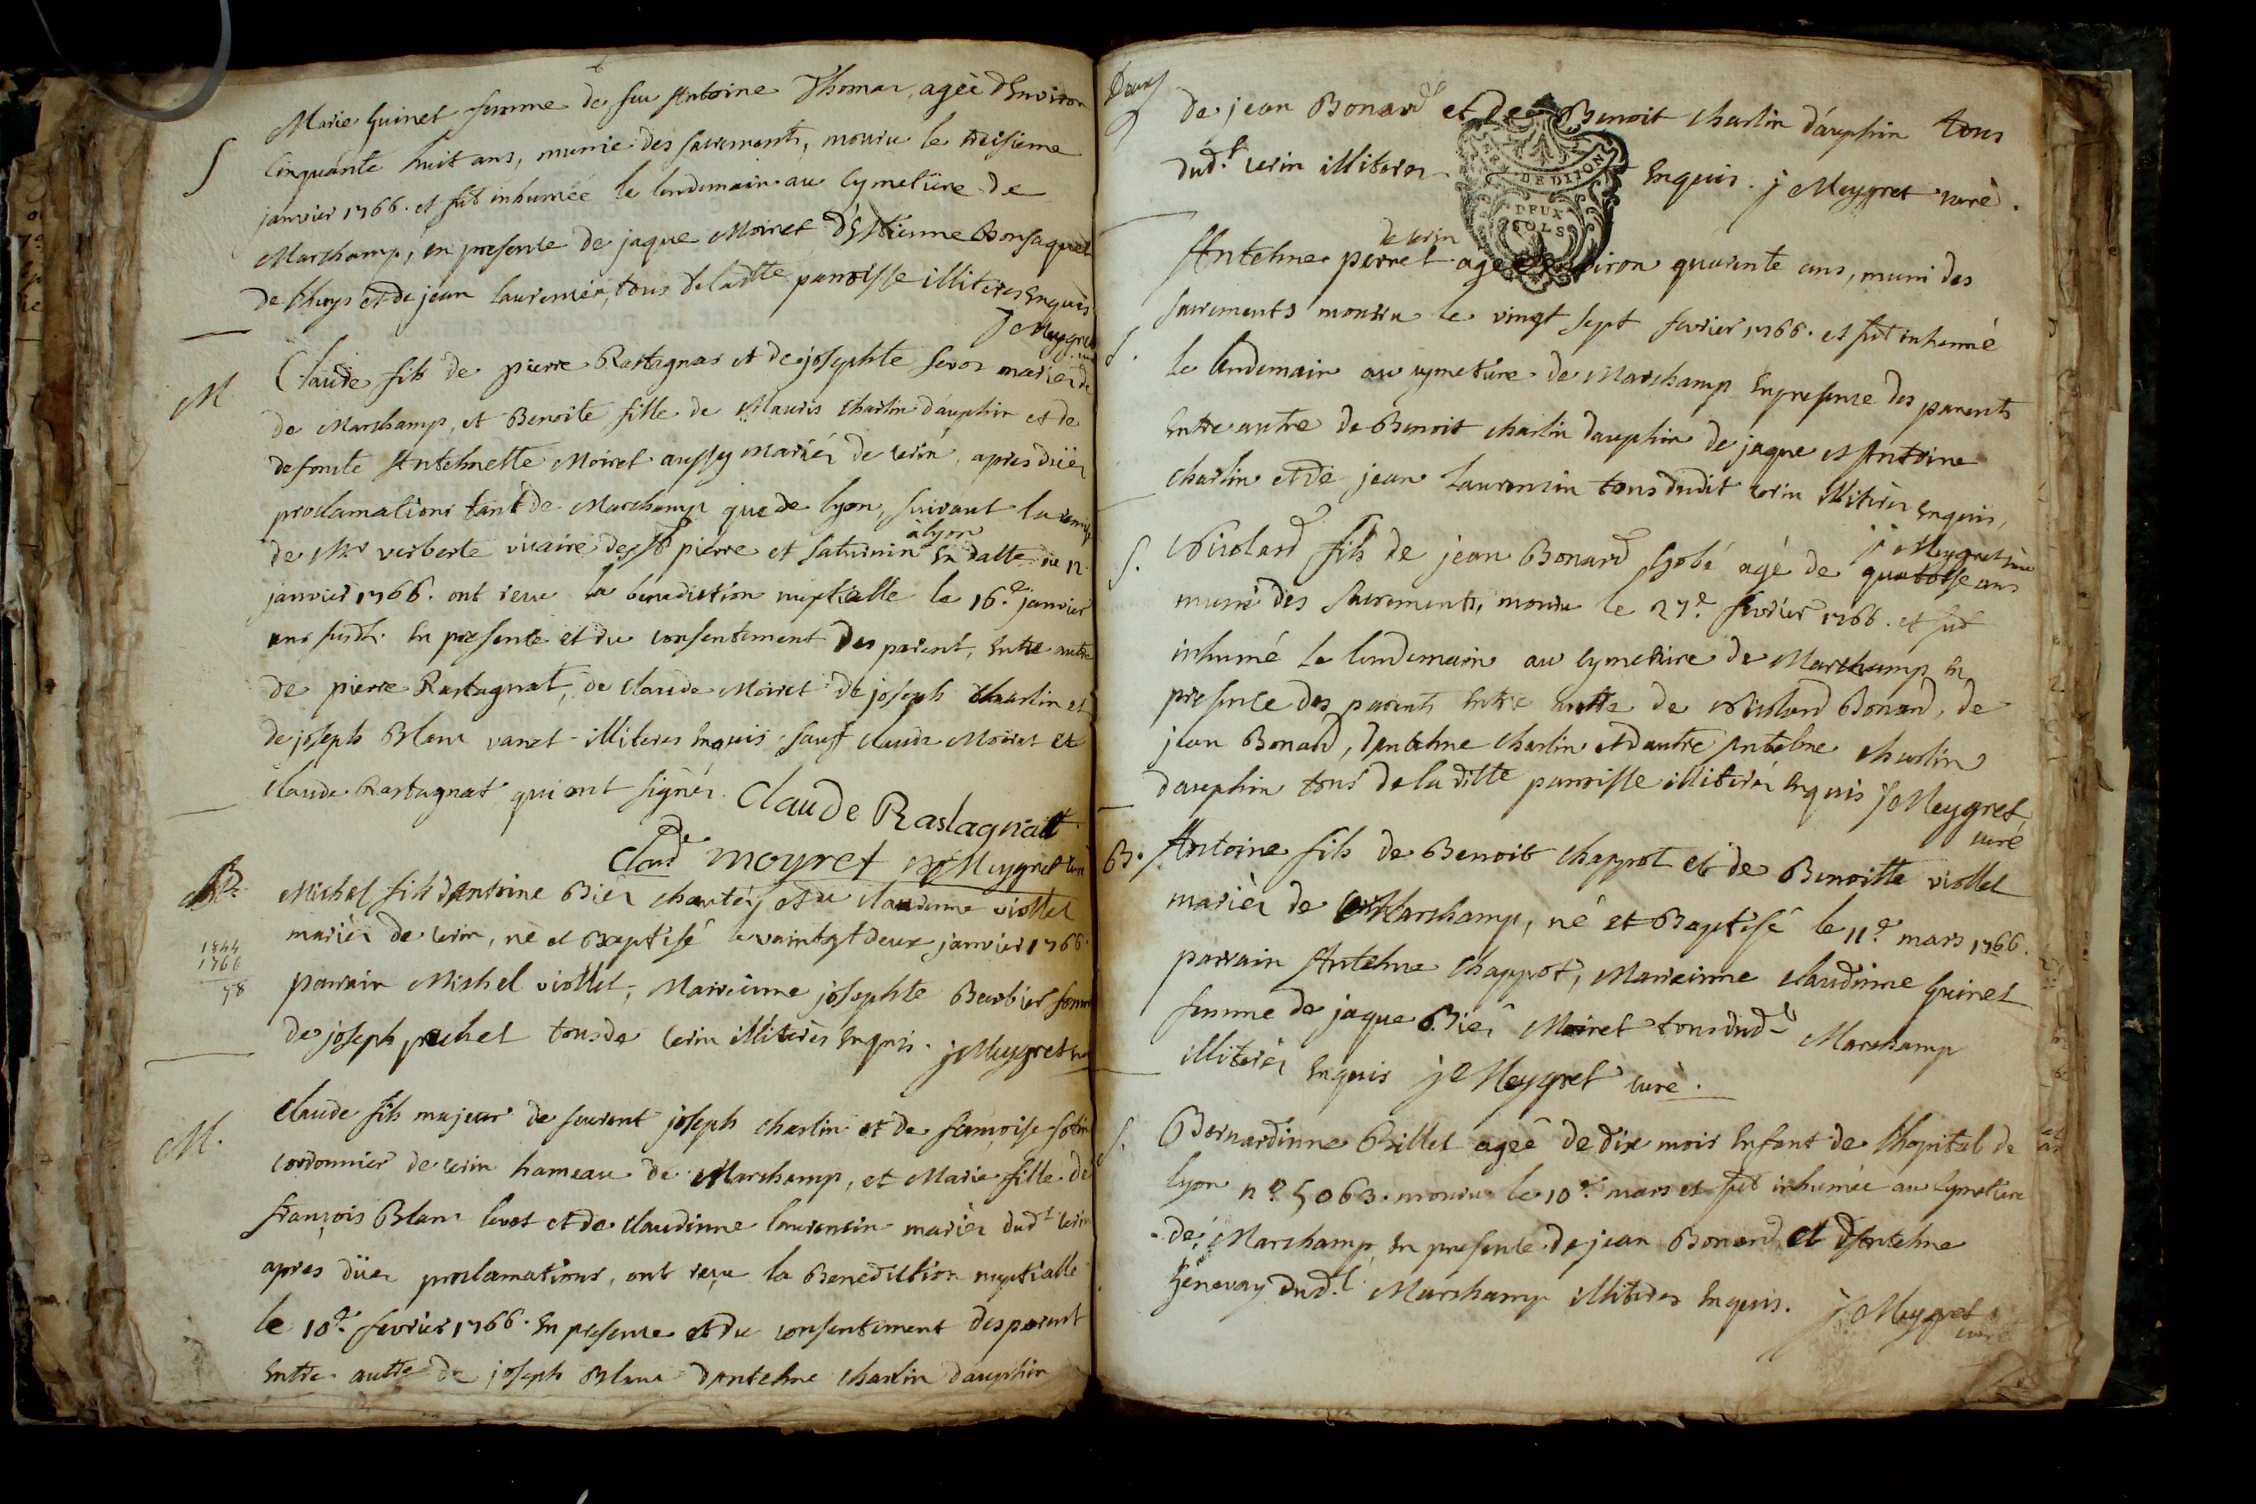 S Marie Guinet femme de feu Antoine Thomas, ageè d'Environ
Cinquante huit ans, munie des sacrements, mouru le treisieme
janvier 1766. et fût inhumée le lendemain au Cymetiére de
Marchamp, en presence de jaque Moiret d'Etienne Bonsaquet
de et de jean laurensin, tous de laditte parroisse illiteres Enquis
J Meygret curé
M Claude fils de pierre Rastagnat et de josephte mariés
de Marchamp, et Benoite fille de Mauris charlin dauphin et de
defunte Antehnette Moiret aussy mariés de cerin, apres düës
proclamations tant de Marchamp que de lyon, suivant la remise
de Mr verberte vicaire de St pierre et saturnin à lyon En datte du 12
janvier 1766. ont reçu la benediction nuptialle le 16.e janvier
ans susdt. En presence et du consentement des parent, Entre autre
de pierre Rastagnat, de claude Moiret de joseph charlin et
de joseph Blanc vanet illiteres Enquis sauf claude Moiret et
claude Rastagnat qui ont signés. Claude Rastagnat
Claude moyret J Meygret curé
B. Michel fils d'Antoine Bier et de claudinne viollet
mariés de cerin, né et Baptisé le vaintgt deux janvier 1766.
1844
1766
78
parrain Michel viollet, Marreinne josephte Barbier femme
de joseph tous de cerin illitérés Enquis. J Meygret curé
M. Claude fils majeur de feurent joseph charlin et de françoise
cordonnier de cerin hameau de Marchamp, et Marie fille de
françois Blanc levet et de claudinne laurensin mariés dudt cerin
apres düës proclamations, ont reçu la Benediction nuptialle
le 10e. fevrier 1766. En presence et du consentement des parent
Entre autre de joseph Blanc d'Antehne charlin dauphin
Deux
de jean Bonard et de Benoit charlin dauphin tous
dudt. cerin illiteres Enquis. J Meygret curé.
GEN. DE DIJON
DEUX
SOLS
S. Antehne perret de cerin agé d'Environ quarente ans, muni des
sacrements mouru le vingt sept fevrier 1766. et fût inhumé
le lendemain au cymetiére de Marchamp En presence des parents
Entre autre de Benoit charlin dauphin de jaque et Antoine
charlin et de jean laurensin tous dudit cerin illitérés Enquis,
J Meygret curé
S. Nicolard fils de jean Bonard Gobé agé de quatorse ans
muni des sacrements, mouru le 27e. fevrier 1766. et fut
inhumé le lendemain au cymetiére de Marchamp En
presence des parents Entre autre de Nicolard Bonard, de
jean Bonard, d'antehne charlin et d'autre Antehne charlin
dauphin tous de laditte parroisse illiterés Enquis J Meygret,
curé
B. Antoine fils de Benoit chappot et de Benoitte viollet
mariés de Marchamp, né et Baptisé le 11e. mars 1766.
parrain Antehne chappot, Marreinne claudinne Guinet
femme de jaque Bier Moiret tous dudt Marchamp
illiterés Enquis J Meygret curè.
S. Bernardinne Billet ageê de dix mois Enfant de l'hopital de
lyon n.o 5063. mouru le 10e. mars et fut inhumée au Cymetiére
de Marchamp, En presence de jean Bonard et d'Antehne
Genevay dudt. Marchamp illiteres Enquis. J Meygret
curé